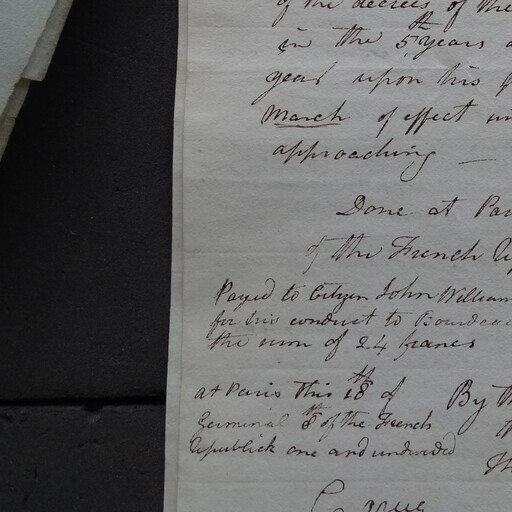 of the decrees of the
in the 5th years
year upon this
March of effect
approaching —
Done at
of the French
Payed to Citizen John William
for his conduct to Bourdeau
the sum of 24 francs
at Paris this 18th of By
Germinal 8th of the French
Republick one and undivided